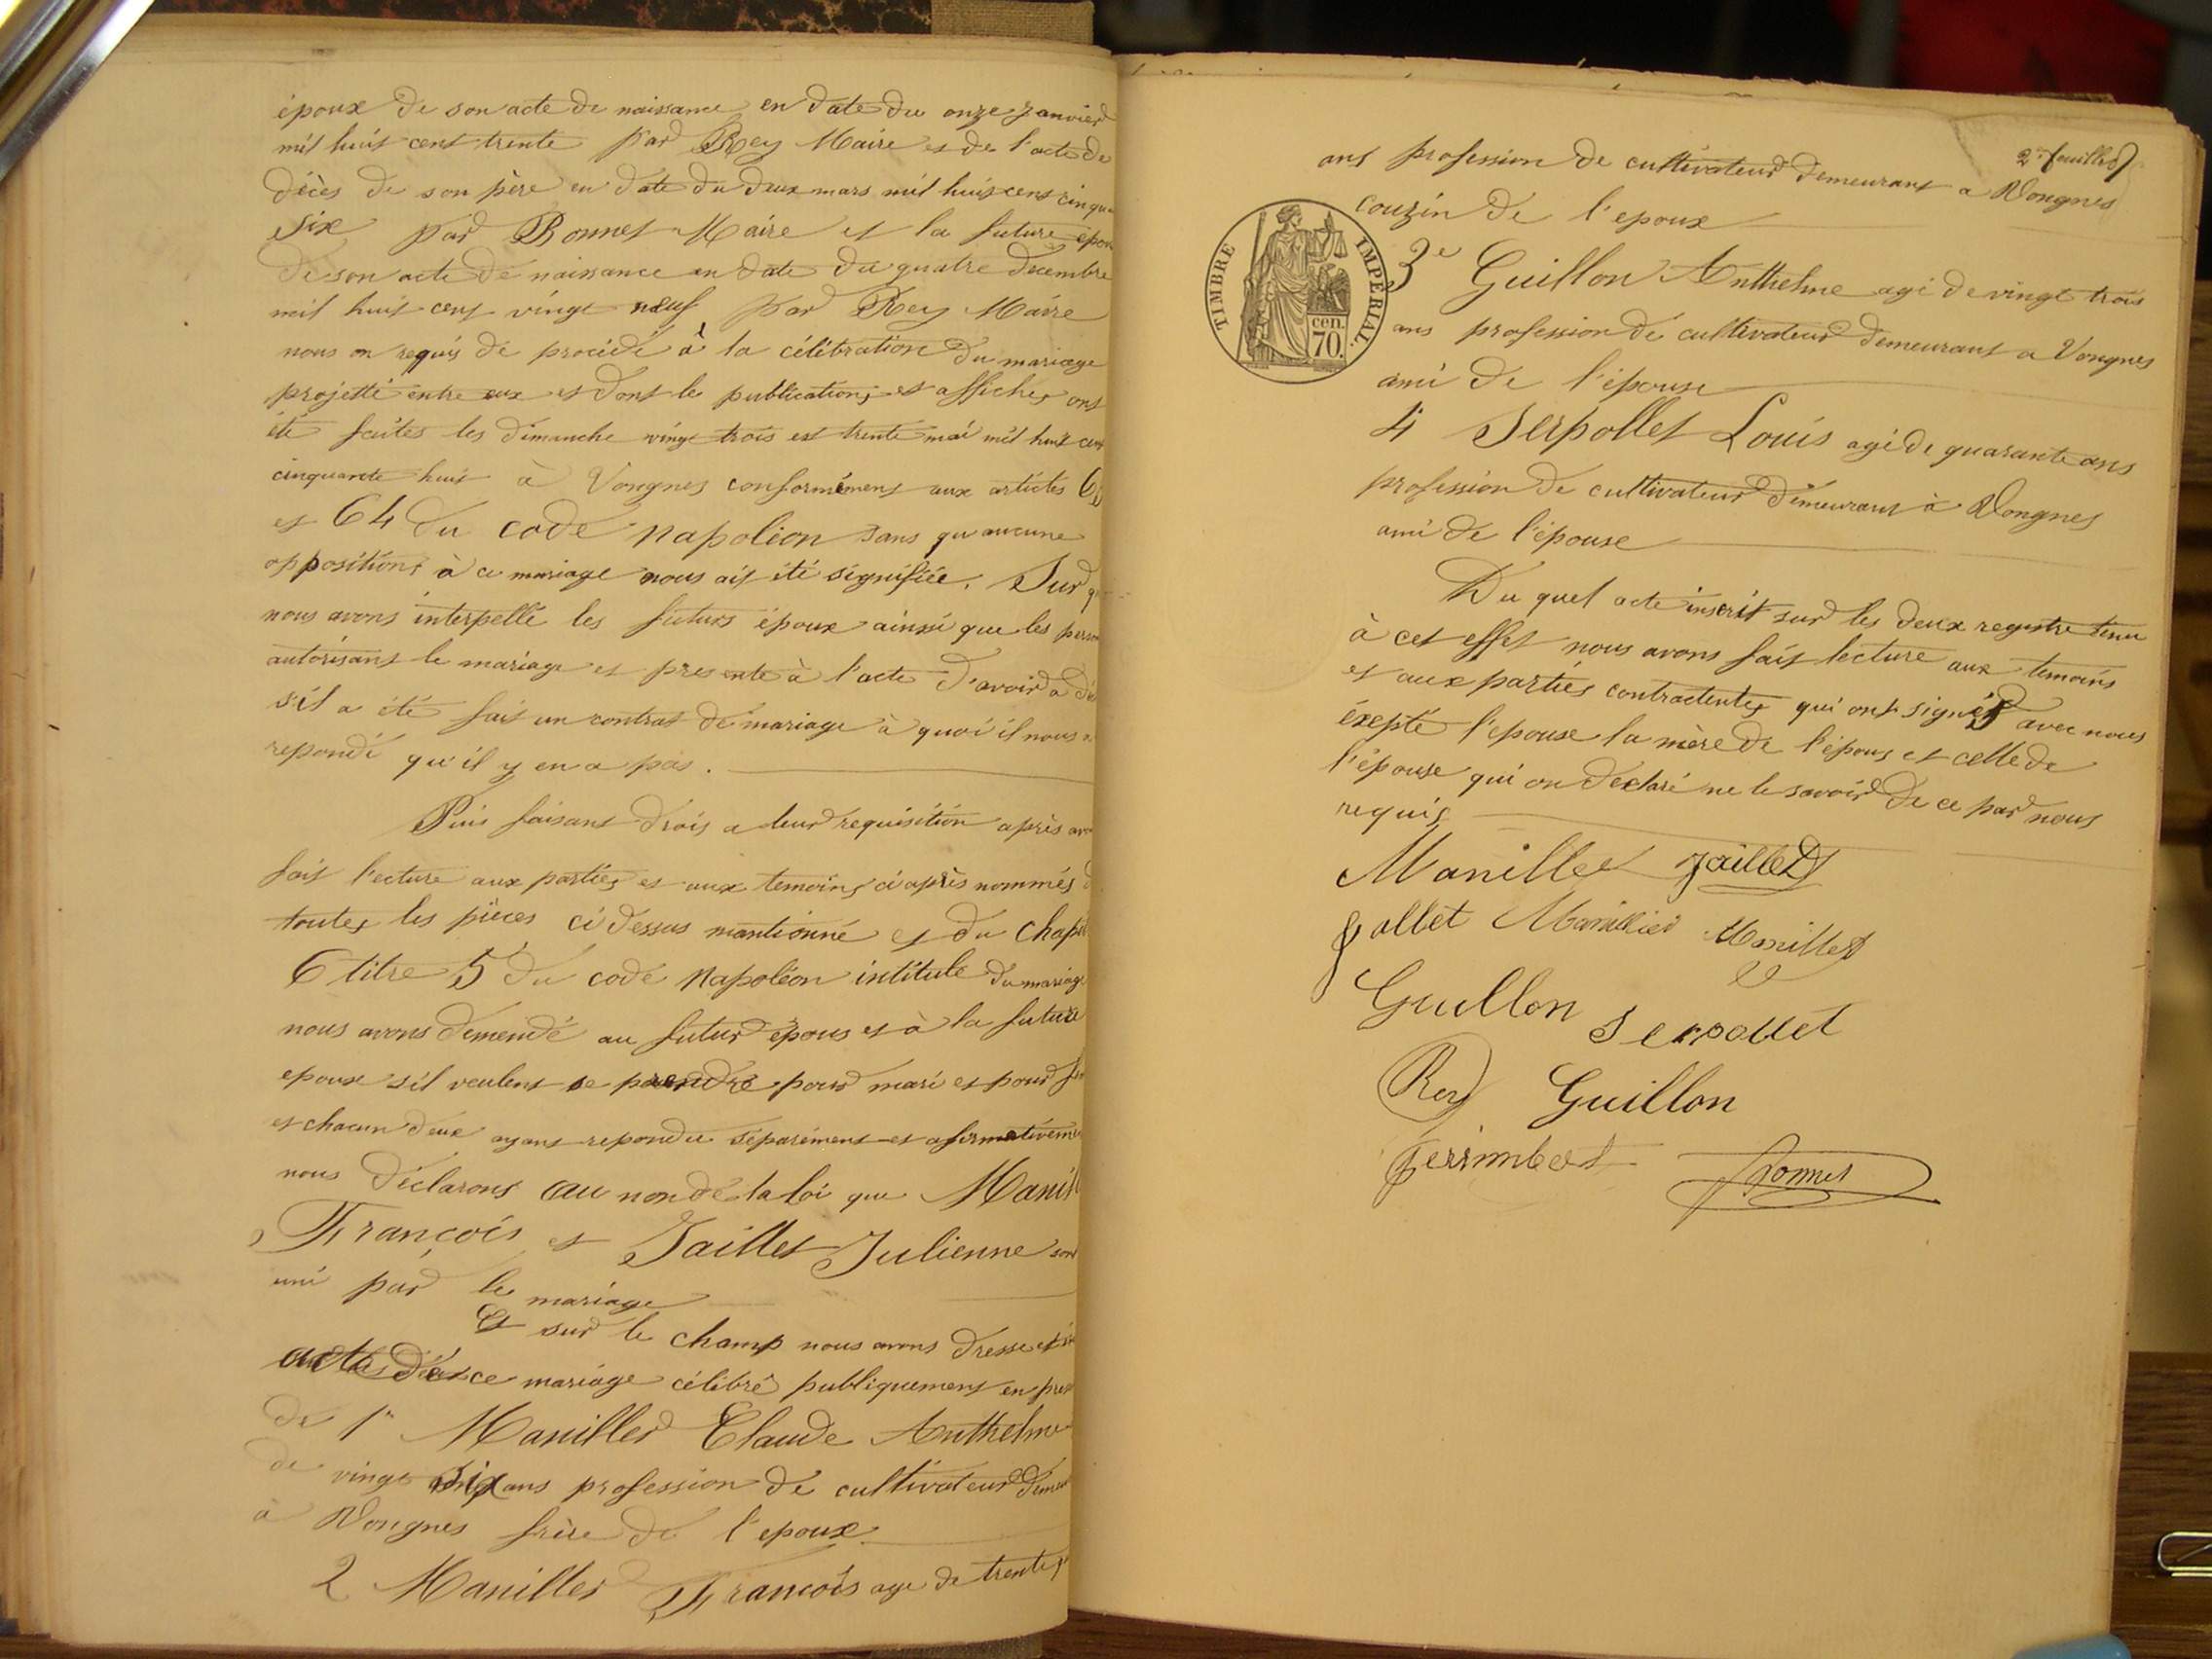 époux de son acte de naissance en date du onze Janvier
mil huit cent trente par Rey Maire et de l'acte de
décès de son père en date du deux mars mil huit cent cinqu
six par Bonnet Maire et la future épou
de son acte de naissance en date du quatre Decembre
mil huit cent vingt neuf par Rey Maire
nous on requis de procédé à la célébration du mariage
projetté entre eux et dont les publications et affiches ont
été faites les dimanche vingt trois et trente mai mil huit cent
cinquante huit à Vongnes conformément aux articles 63
et 64 du code napoléon sans qu'aucune
oppositions à ce mariage nous ait été signifiée. Sur q
nous avons interpellé les futurs époux ainsi que les person
autorisant le mariage et presente à l'acte d'avoir a dé
s'il a été fait un contrat de mariage à quoi il nous
repondi qu'il y en a pas.
Puis faisant droit a leur requisition après av
fait lecture aux parties et aux temoins ci après nommés d
toutes les pièces ci dessus mantionné et du chapit
6 titre 5 du code Napoléon intitulé du mariage
nous avons demendé au futur épous et à la future
epouse s'il veulent se prendre pour mari et pour fe
et chacun deux ayant repondu séparément et afirmativeme
nous déclarons au nom de la loi que Manill
François et Jaillet Julienne son
uni par le mariage
Et sur le champ nous avons dresse et
acte de ce mariage célébré publiquement en pres
de 1er Maniller Claude Anthelme
de vingt six ans profession de cultivateur demeu
à Vongnes frère de l'epoux
2 Maniller François age de trente
2e feuillet
ans profession de cultivateur demeurant a Vongnes
couzin de l'epoux
TIMBRE IMPÉRIAL
70 cen.
3e Guillon Anthelme agé de vingt trois
ans profession de cultivateur demeurant a Vongnes
ami de l'épouse
4 Serpollet Louis agé de quarante ans
profession de cultivateur demeurant à Vongnes
ami de l'épouse
Du quel acte inscrit sur les deux registre tenu
à cet effet nous avons fait lecture aux temoins
et aux parties contractentes qui ont signés avec nous
éxepté l'epouse la mère de l'épous et celle de
l'épouse qui on déclaré ne le savoir de ce par nous
requis
Maniller Jaillet
Manillier Maniller
Guillon Serpollet
Rey Guillon
Bonnet